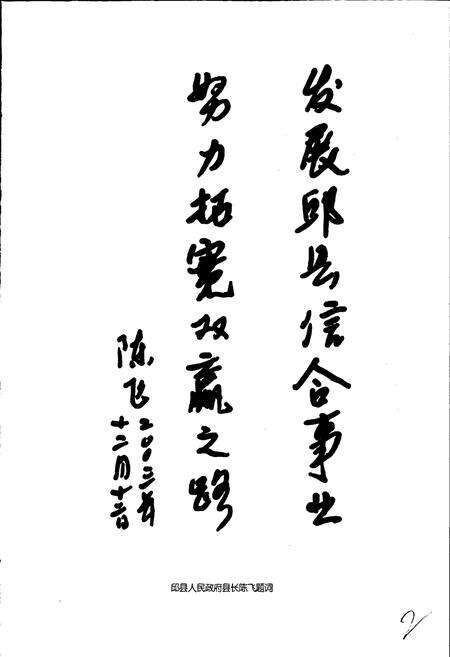 发展邱县信合事业
努力拓宽双赢之路
陈飞
二00三年
十二月十二日
邱县人民政府县长陈飞题词
2